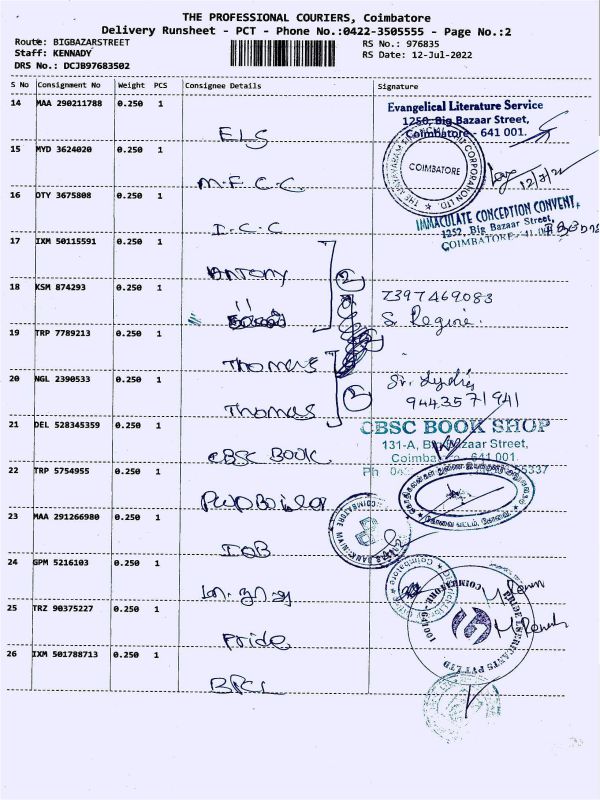 THE PROFESSIONAL COURIERS, Coimbatore
Delivery Runsheet - PCT - Phone No.:0422-3505555 - Page No.:2
Route: BIGBAZARSTREET
RS No.: 976835
Staff: KENNADY
RS Date: 12-Jul-2022
DRS No.: DCJB97683502
S No Consignment No Weight PCS Consignee Details Signature
14 MAA 290211788 0.250 1 ELS
Evangelical Literature Service
1250, Big Bazaar Street,
Coimbatore - 641 001.
15 MYD 3624020 0.250 1 M.F.C.C
COIMBATORE
12/7/22
16 DTY 3675808 0.250 1 I.C.C
IMMACULATE CONCEPTION CONVENT,
1252, Big Bazaar Street,
17 IXM 50115591 0.250 1 ANTONY
2
18 KSM 874293 0.250 1 "
7397469083
S. Regine.
19 TRP 7789213 0.250 1 Thomas
20 NGL 2390533 0.250 1 Thomas
2
9443571941
21 DEL 528345359 0.250 1 CBSC BOOK
CBSC BOOK SHOP
131-A, Big Bazaar Street,
22 TRP 5754955 0.250 1
23 MAA 291266980 0.250 1 IOB
24 GPM 5216103 0.250 1
25 TRZ 90375227 0.250 1 Pride
26 IXM 501788713 0.250 1 BPCL